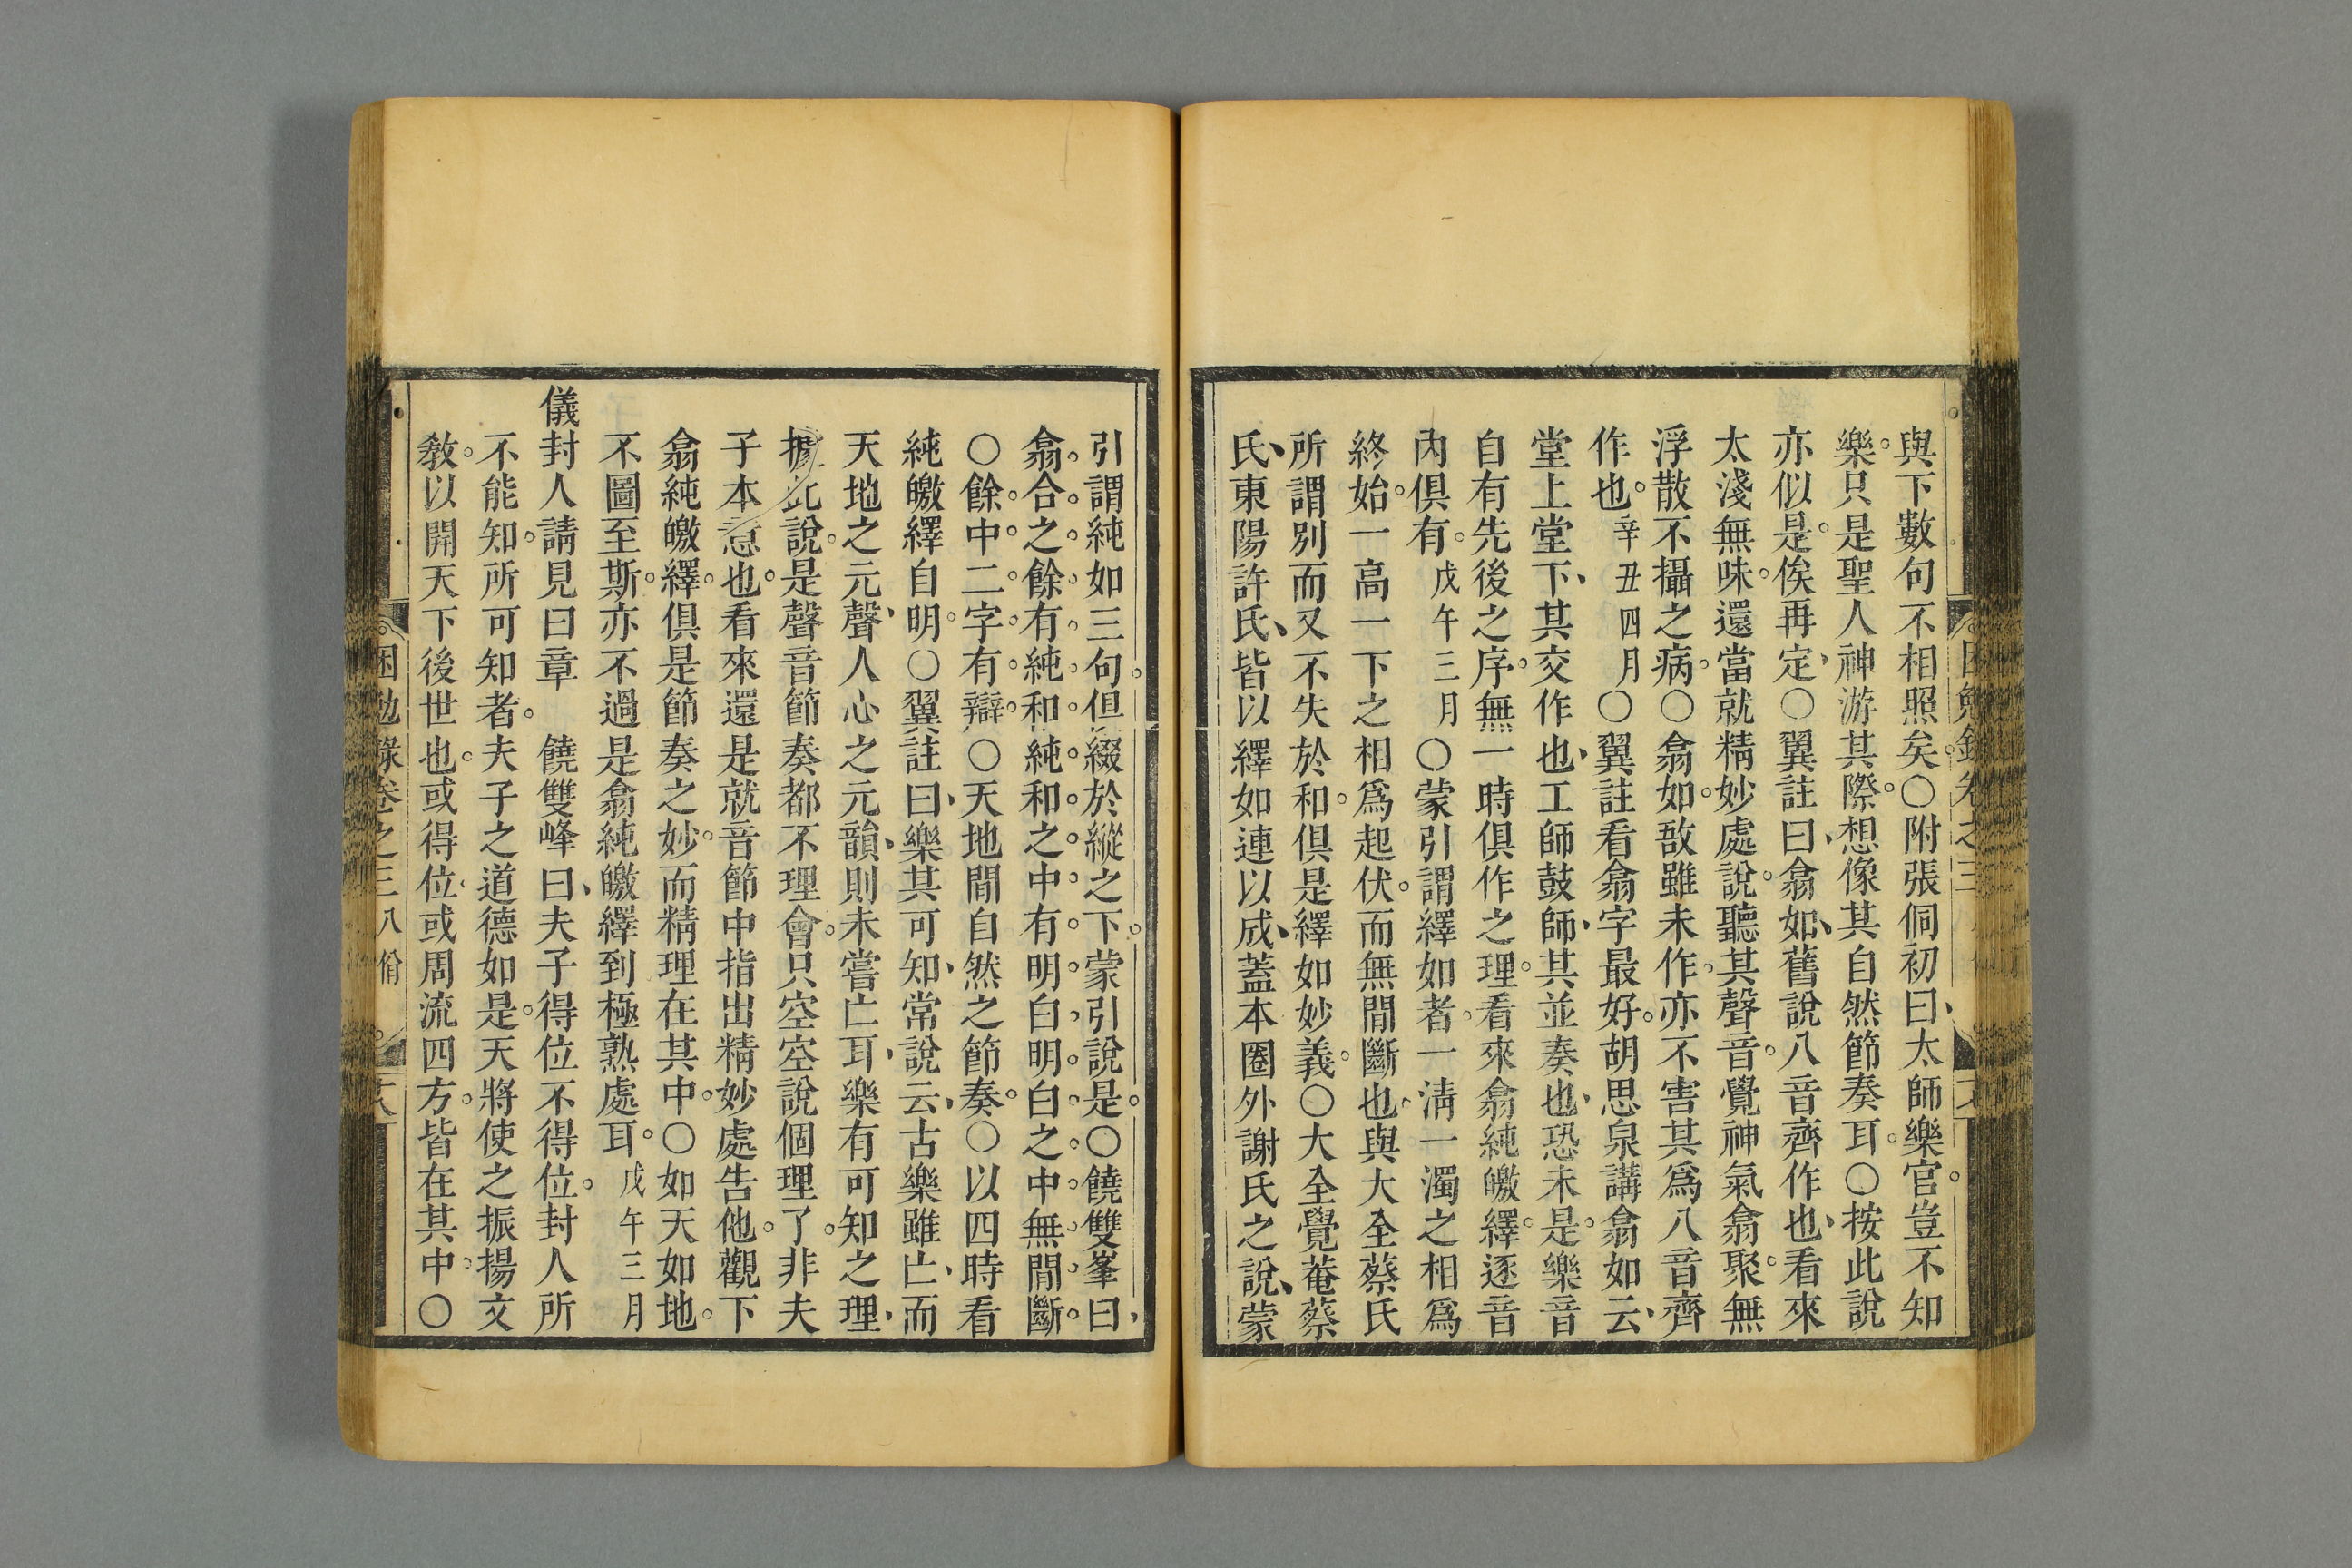 與下數句不相照矣○附張侗初曰太師樂官豈不知
樂只是聖人神游其際想像其自然節奏耳○按此說
亦似是俟再定○翼註曰翕如舊說八音齊作也看來
太淺無味還當就精妙處說聽其聲音覺神氣翕聚無
浮散不攝之病○翕如敔雖未作亦不害其爲八音齊
作也辛丑四月○翼註看翕字最好胡思泉講翕如云
堂上堂下其交作也工師鼓師其並奏也恐未是樂音
自有先後之序無一時俱作之理看來翕純皦繹逐音
內俱有戊午三月○蒙引謂繹如者一淸一濁之相爲
終始一高一下之相爲起伏而無間斷也與大全蔡氏
所謂別而又不失於和俱是繹如妙義○大全覺菴蔡
氏東陽許氏皆以繹如連以成蓋本圈外謝氏之說蒙
引謂純如三句但綴於縱之下蒙引說是○饒雙峯曰
翕合之餘有純和純和之中有明白明白之中無間斷
○餘中二字有辯○天地間自然之節奏○以四時看
純皦繹自明○翼註曰樂其可知常說云古樂雖亡而
天地之元聲人心之元韻則未嘗亡耳樂有可知之理
據此說是聲音節奏都不理會只空空說個理了非夫
子本意也看來還是就音節中指出精妙處告他觀下
翕純皦繹俱是節奏之妙而精理在其中○如天如地
不圖至斯亦不過是翕純皦繹到極熟處耳戊午三月
儀封人請見曰章 饒雙峰曰夫子得位不得位封人所
不能知所可知者夫子之道德如是天將使之振揚文
敎以開天下後世也或得位或周流四方皆在其中○
困勉錄卷之三 八佾 十八